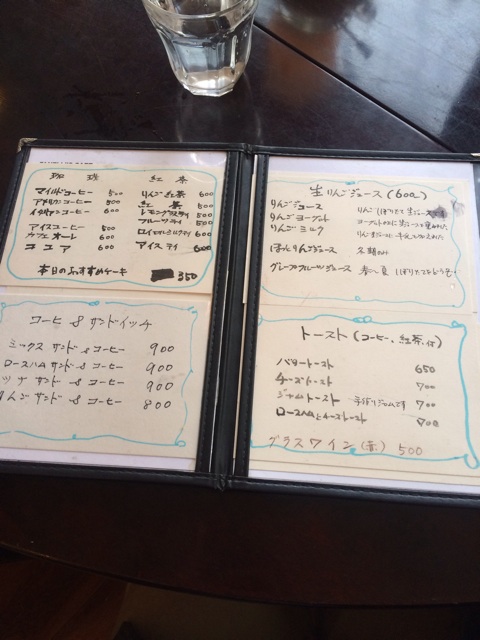 珈琲 紅茶
マイルドコーヒー 500 りんご紅茶 600
アメリカンコーヒー 500 紅茶 500
イタリアンコーヒー 600 レモングラスティ 500
フルーツティ 500
アイスコーヒー 500 ロイヤルミルクティ 600
カフェオーレ 600 アイスティ 600
ココア 600
本日のおすすめケーキ 350
コーヒー & サンドイッチ
ミックスサンド & コーヒー 900
ロースハムサンド & コーヒー 900
ツナサンド & コーヒー 900
りんごサンド & コーヒー 800
生りんごジュース (600)
りんごジュース りんごしぼりたて生ジュース
りんごヨーグルト
りんごミルク
ほっとりんごジュース 冬期のみ
グレープフルーツジュース 春〜夏 しぼりたてをどうぞ
トースト (コーヒー、紅茶付)
バタートースト 650
チーズトースト 700
ジャムトースト 手作りジャムです 700
ロースハムとチーズトースト 700
グラスワイン (赤) 500